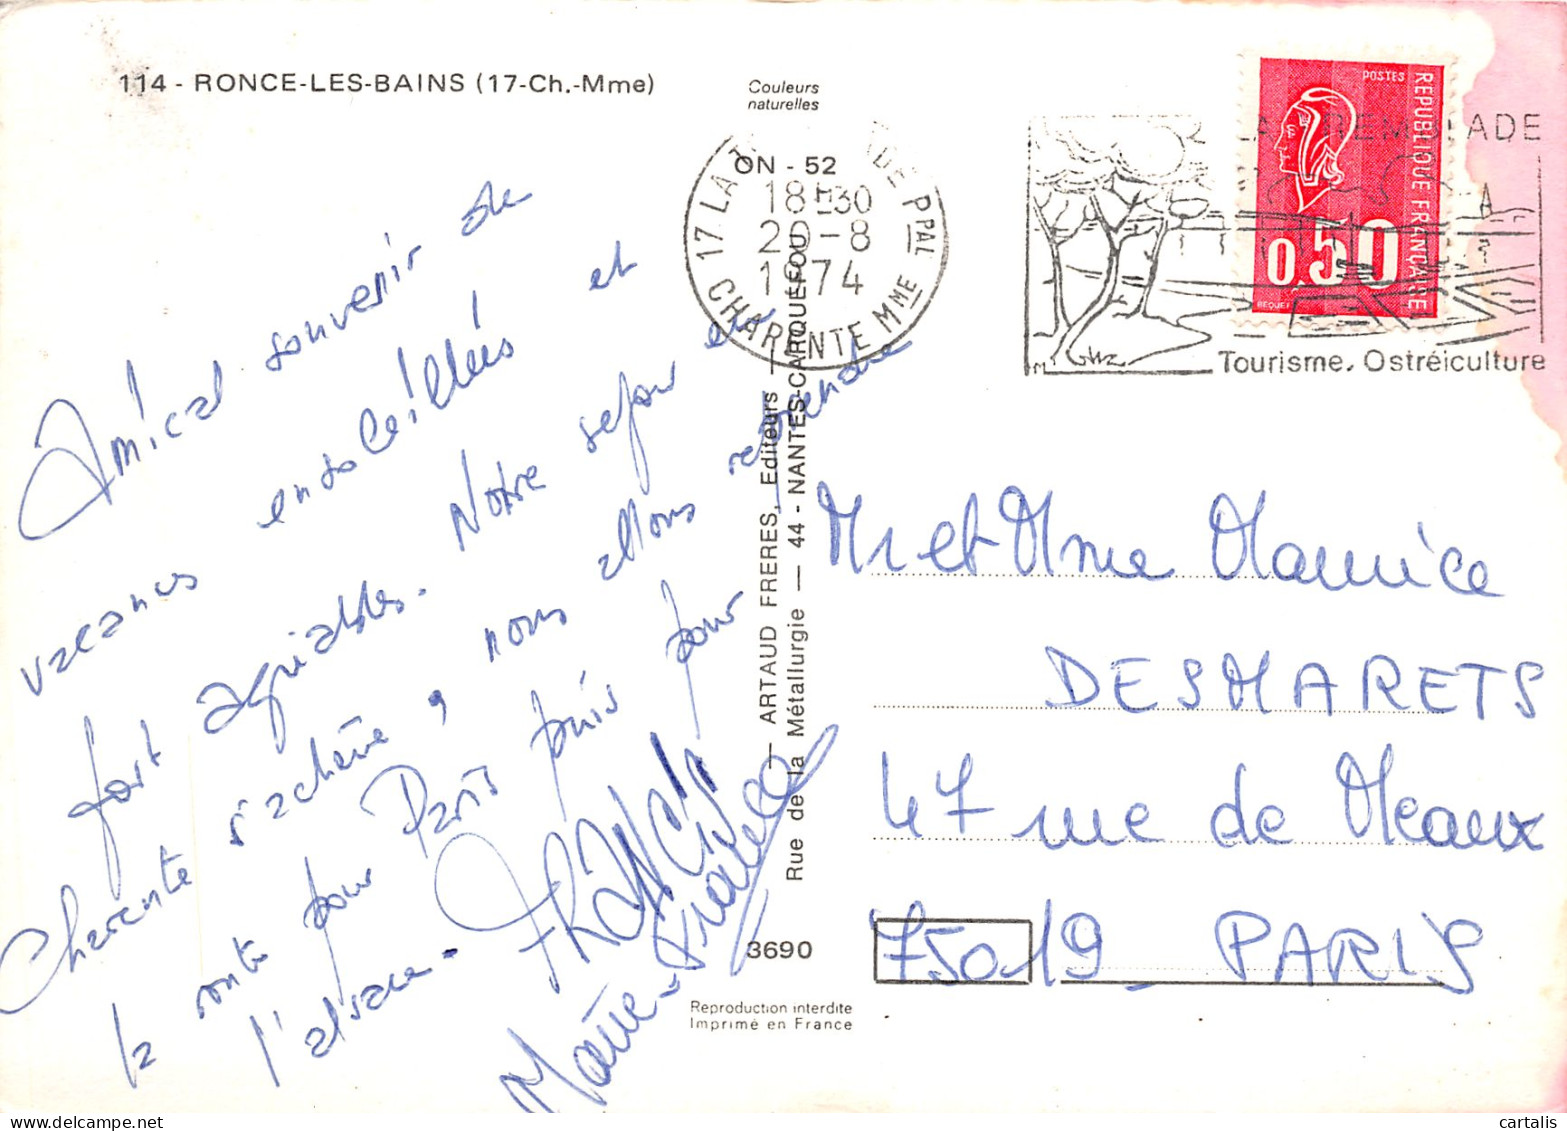 114 - RONCE-LES-BAINS (17-Ch.-Mme)
Couleurs
naturelles
ON - 52
17 LA TREMBLADE PPAL
18H30
20-8
1974
CHARENTE MME
LA TREMBLADE
Tourisme. Ostréiculture
POSTES
REPUBLIQUE FRANÇAISE
0,50
BEQUET
Amical souvenir de
vacances ensoleillées et
fort agréables. Notre séjour en
Charente s'achève, nous allons reprendre
la route pour Paris puis pour
l'alsace -
FRANCIS
ARTAUD FRERES, Editeurs
Rue de la Métallurgie — 44 - NANTES-CARQUEFOU
3690
Reproduction interdite
Imprimé en France
Mr et Mme Maurice
DESMARETS
47 rue de Meaux
75019 PARIS
cartalis